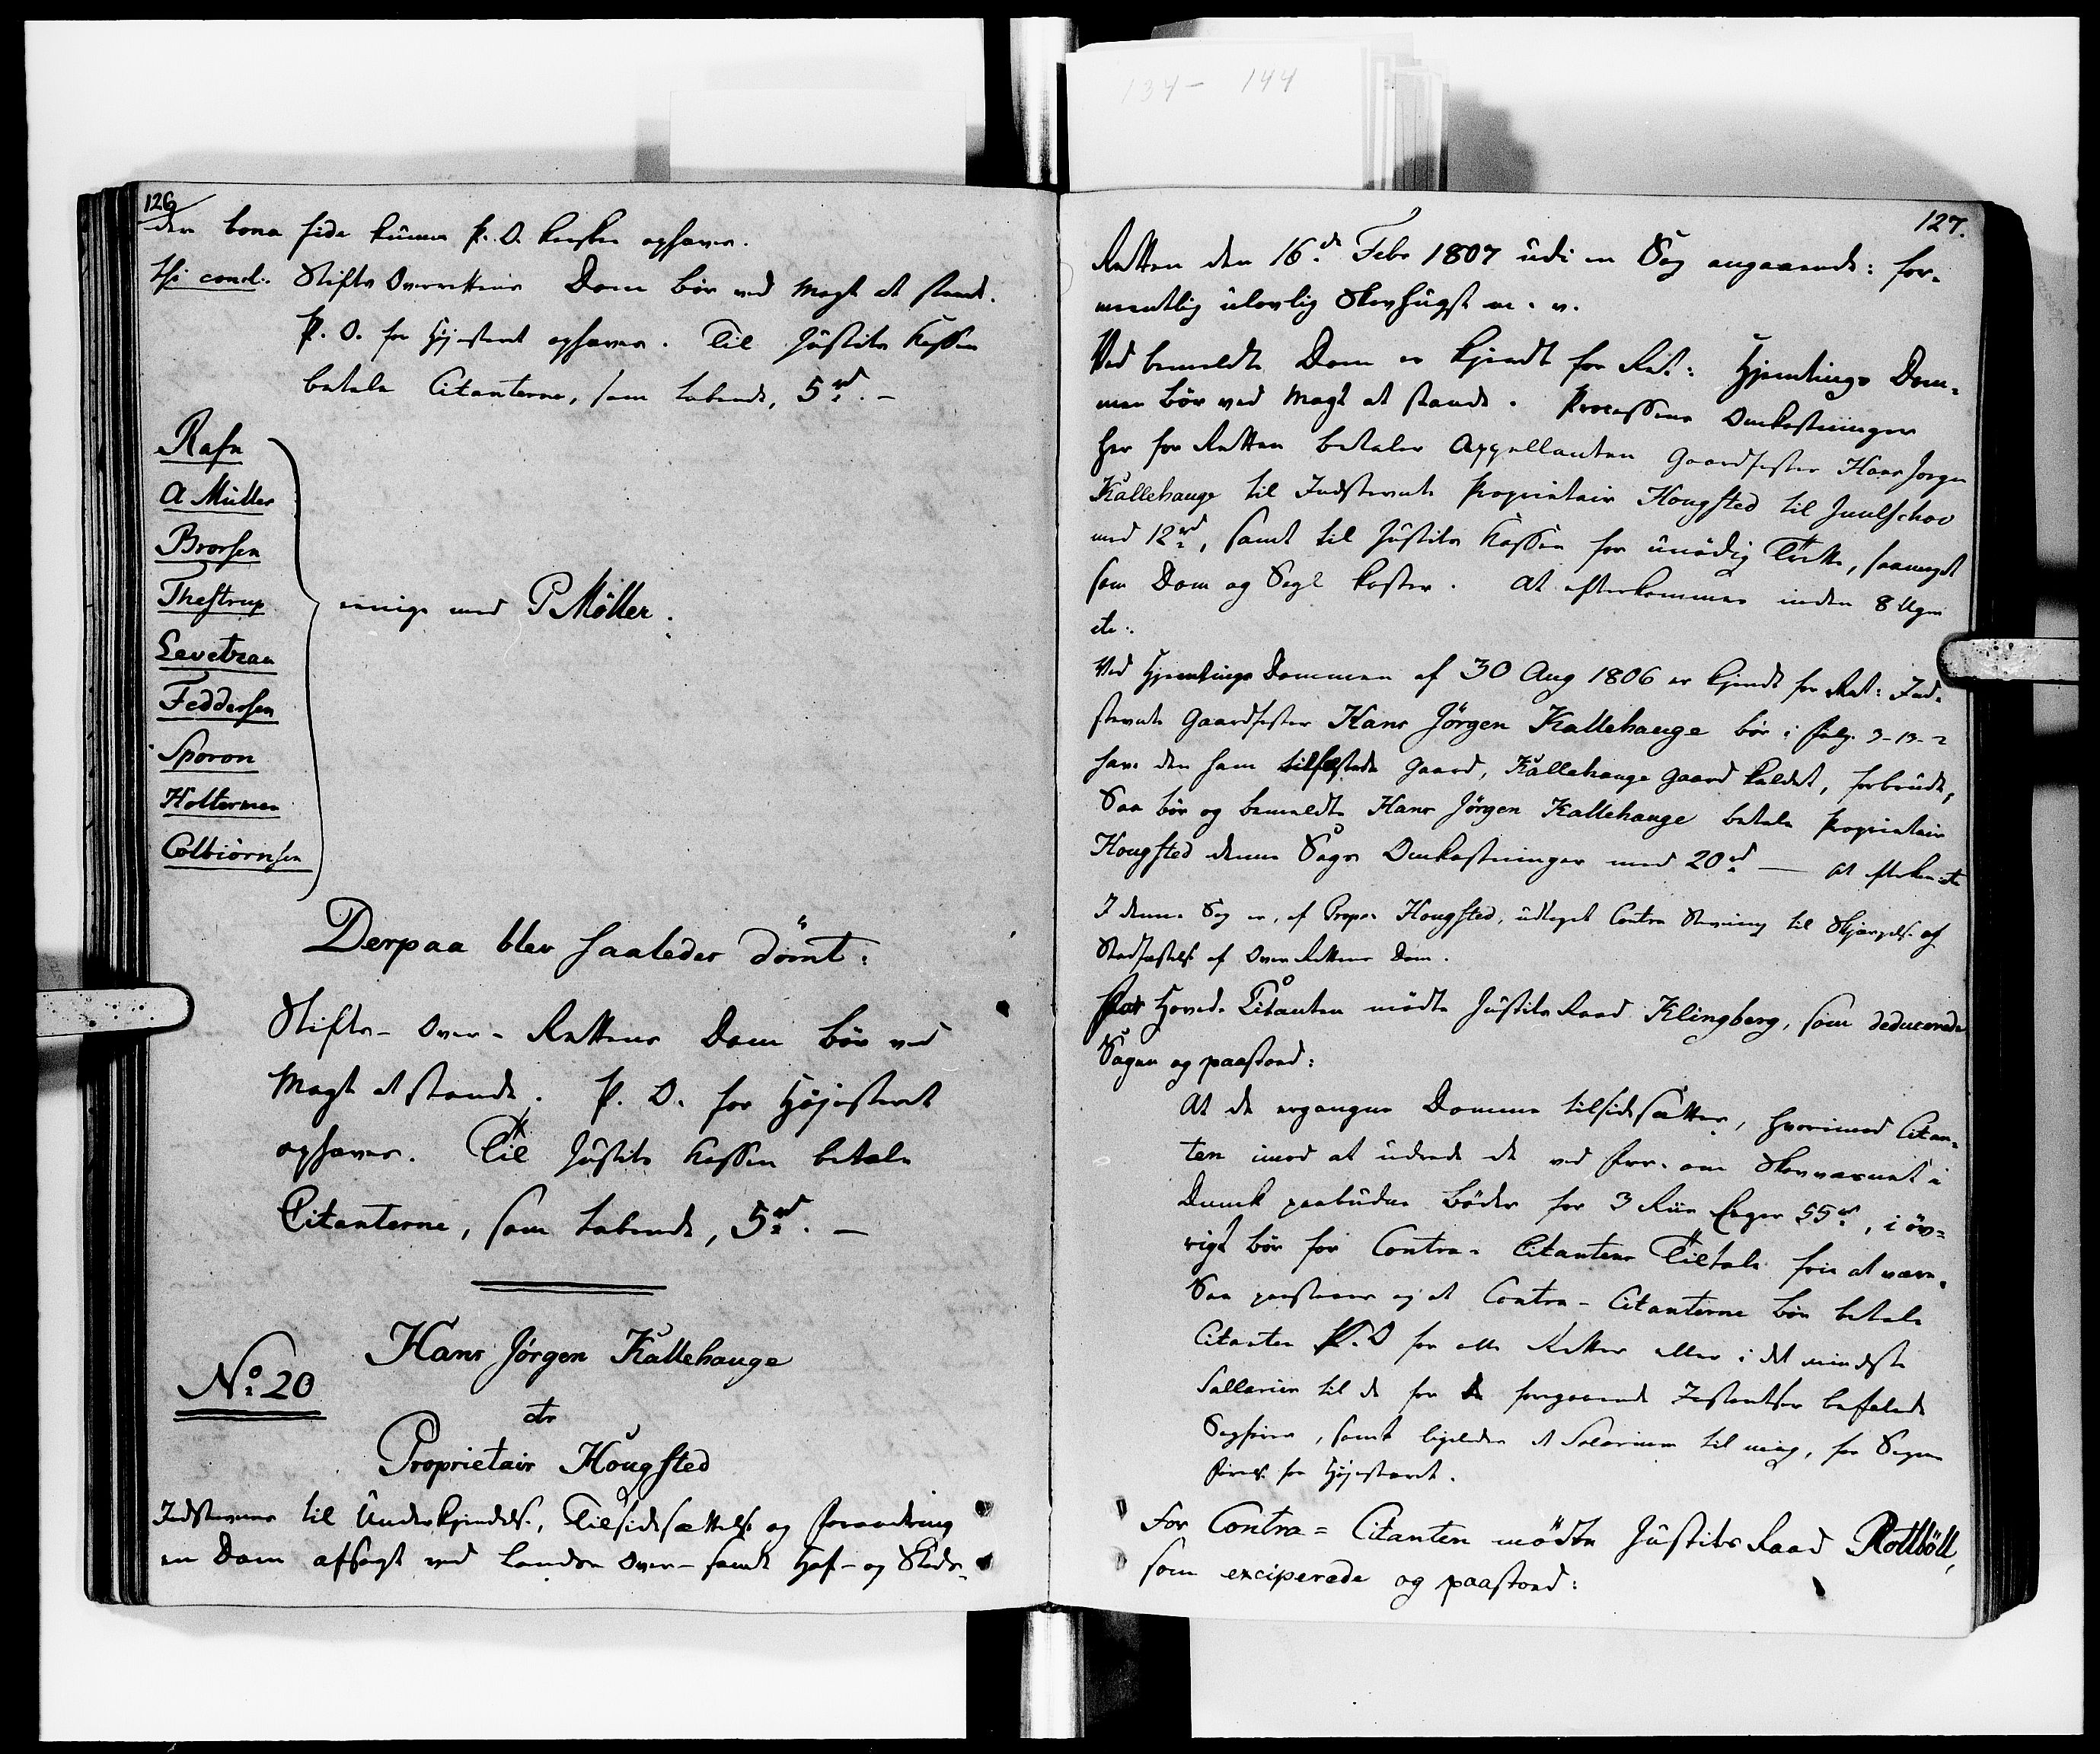 134 - 144
126
den bona fide kunne P. O. kuske ophæves.
Thi concl: Stifts Overrettens Dom bör ved Magt at stande.
P. O. for Höjesteret ophæves. Til Justits Kassen
betale Citanterne, som tabende, 5 rd. —
Rafn
A Müller
Brorsen
Thestrup
Levetzau
Feddersen
Sporon
Holterman
Colbiörnsen
enige med P Möller.
Derpaa blev saaledes dömt:
Stifts- Over- Rettens Dom bör ved
Magt at stande. P. O. for Höjesteret
ophæves. Til Justits Kassen betale
Citanterne, som tabende, 5 rd. —
Hans Jörgen Kallehauge
No. 20
ctr
Proprietair Hougsted
Indstevner til Underkjendelse, Tilsidesættelse og Forandring
en Dom afsagt ved Lands Over- samt Hof- og Stads-
127.
Retten den 16de Febr 1807 udi en Sag angaaende: for-
mentlig ulovlig Skovhugst m. v.
Ved bemeldte Dom er kjendt for Ret: Hjemtings Dom-
men bör ved Magt at stande. Processens Omkostninger
her for Retten betaler Appellanten Gaardfester Hans Jorgen
Kallehauge til Indstevnte Proprietair Hougsted til Juulschov
med 12 rd, samt til Justits Kassen for unödig Trette, saameget
som Dom og Segl koster. At efterkommes inden 8 Uger
etc.
Ved Hjemtings Dommen af 30 Aug 1806 er kjendt for Ret: Ind-
stevnte Gaardfester Hans Jörgen Kallehauge bör i fölge 3-13-2
have den ham tilfæstede Gaard, Kallehauge Gaard kaldet, forbrudt,
Saa bör og bemeldte Hans Jörgen Kallehauge betale Proprietair
Hougsted denne Sags Omkostninger med 20 rd — At efterkom: etc
I denne Sag er, af Propr. Hougsted, udtaget Contra Stevning til Skjærpelse og
Stadfæstelse af Over Rettens Dom.
For Hoved-Citanten mödte Justits Raad Klingberg, som deducerede
Sagen og paastod:
At de ergangne Domme tilsidesættes, hvorimod Citan-
ten imod at udrede de ved Forr. om Skovvæsenet i
Danmk paabudne Böder for 3 Riis Eeger 55 rd, i öv-
rigt bör for Contra- Citantens Tiltale frie at være.
Saa paastaaes og at Contra- Citanterne bör betale
Citanten P. O for alle Retter eller i det mindste
Sallarier til de for de foregaaende Instantser befalede
Sagförere, samt ligeledes et Salarium til mig, for Sagens
Förelse for Höjesteret.
For Contra- Citanten mödte Justits Raad Rottböll,
som exciperede og paastod: